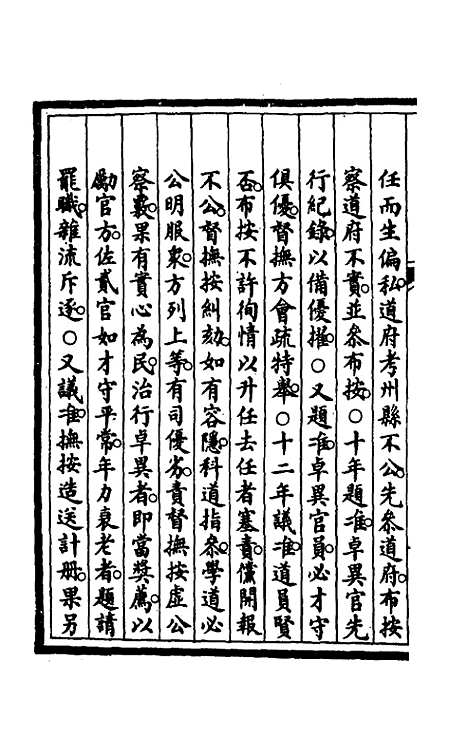 任而生偏私道府考州縣不公先參道府布按
察道府不實並參布按○十年題准卓異官先
行紀錄以備優擢○又題准卓異官員必才守
俱優督撫方會疏特舉○十二年議准道員賢
否布按不許徇情以升任去任者塞責儻開報
不公督撫按糾劾如有容隱科道指參學道必
公明服衆方列上等有司優劣責督撫按虛公
察覈果有實心為民治行卓異者即當奬薦以
勵官方佐貳官如才守平常年力衰老者題請
罷職雜流斥逐○又議准撫按造送計册果另